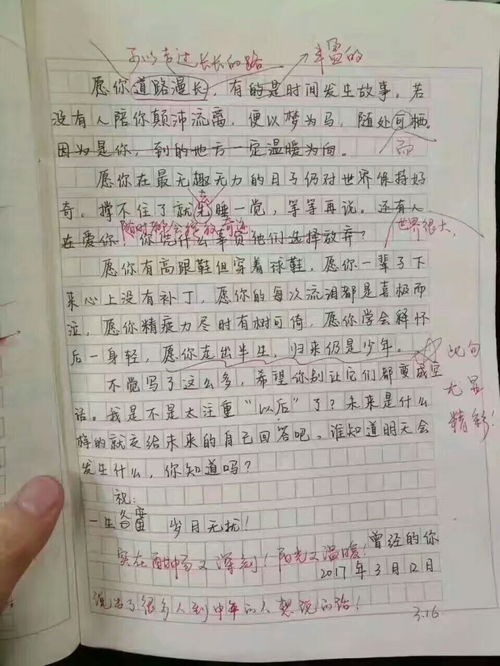 可以走过长长的路
丰富的
愿你道路漫长，有的是时间发生故事。若
没有人陪你颠沛流离，便以梦为马，随处可栖。
而
因为是你，到的地方一定温暖为向。
愿你在最无趣无力的日子仍对世界保持好
奇。撑不住了就先睡一觉，等等再说。还有人
世界很大，
在爱你，你凭什么事责他们选择放弃？
愿你有高跟鞋但穿着球鞋，愿你一辈子下
来心上没有补丁，愿你的每次流泪都是喜极而
泣，愿你精疲力尽时有树可倚，愿你学会释怀
后一身轻，愿你走出半生，归来仍是少年。
此句
尤显
精彩！
不觉写了这么多，希望你别让它们都变成空
话。我是不是太注重“以后”了？未来是什么
样的就交给未来的自己回答吧。谁知道明天会
发生什么，你知道吗？
祝：
一生
岁月无扰！
曾经的你
实在酣畅又深刻！阳光又温暖！
2017年3月12日
说出了很多人到中年的人想说的话！
3.16